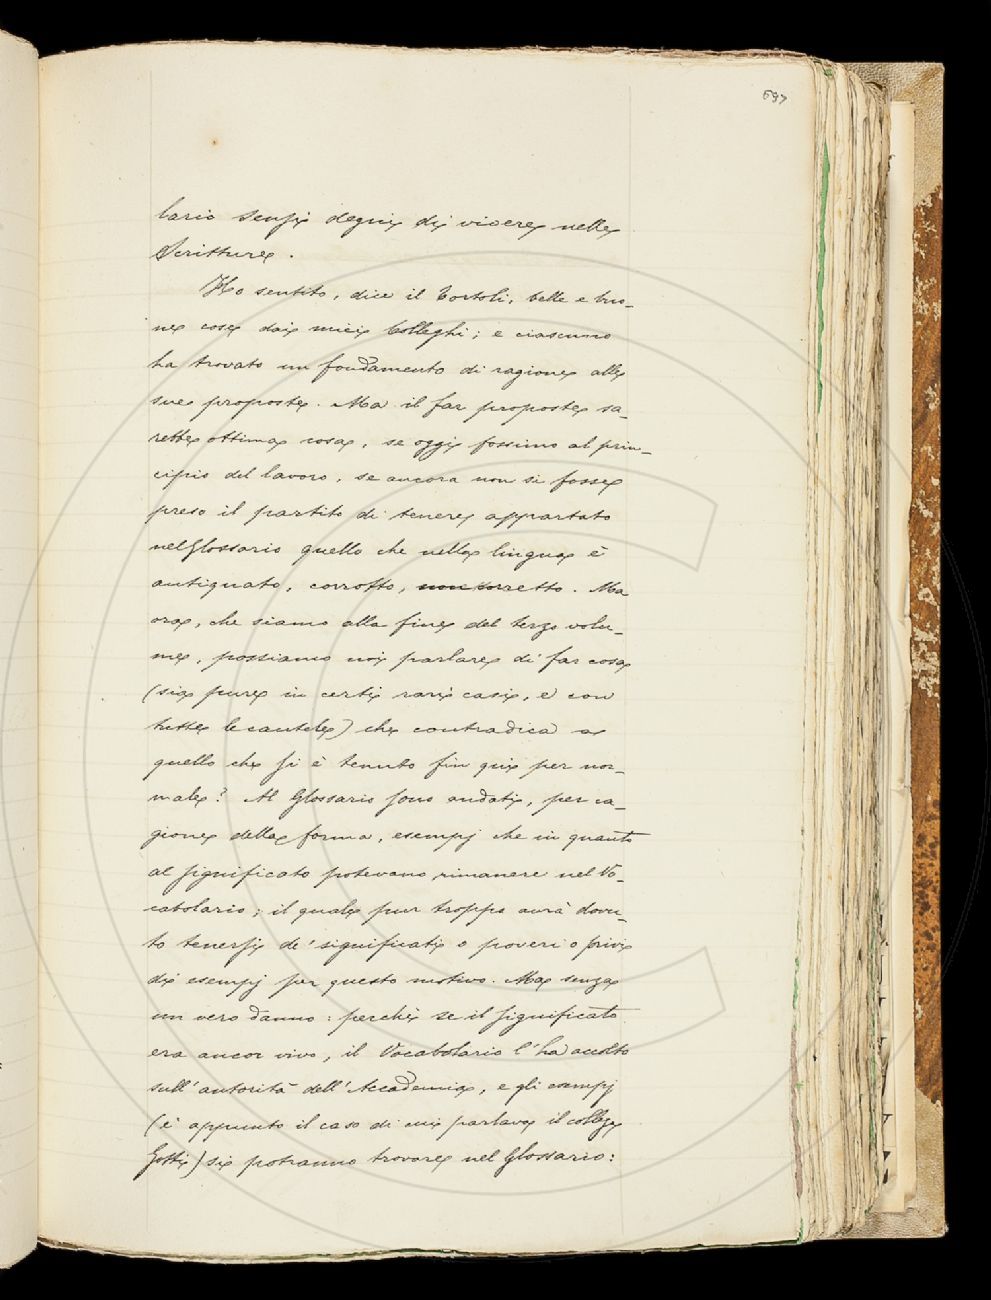 697
lario sensi degni di vivere nelle
Scritture.
Ho sentito, dice il Tortoli, belle e buo-
ne cose dai miei Colleghi; e ciascuno
ha trovato un fondamento di ragione alle
sue proposte. Ma il far proposte sa-
rebbe ottima cosa, se oggi fossimo al prin-
cipio del lavoro, se ancora non si fosse
preso il partito di tenere appartato
nel Glossario quello che nella lingua è
antiquato, corrotto, non corretto. Ma
ora, che siamo alla fine del terzo volu-
me, possiamo noi parlare di far cosa
(sia pure in certi rari casi, e con
tutte le cautele) che contradica a
quello che si è tenuto fin qui per nor-
male? Al Glossario sono andati, per ca-
gione della forma, esempj che in quanto
al significato potevano rimanere nel Vo-
cabolario; il quale pur troppo avrà dovu-
to tenersi de' significati o poveri o privi
di esempj per questo motivo. Ma senza
un vero danno: perchè se il significato
era ancor vivo, il Vocabolario l'ha accolto
sull'autorità dell'Accademia, e gli esempj
(è appunto il caso di cui parlava il collega
Gotti) si potranno trovare nel Glossario: